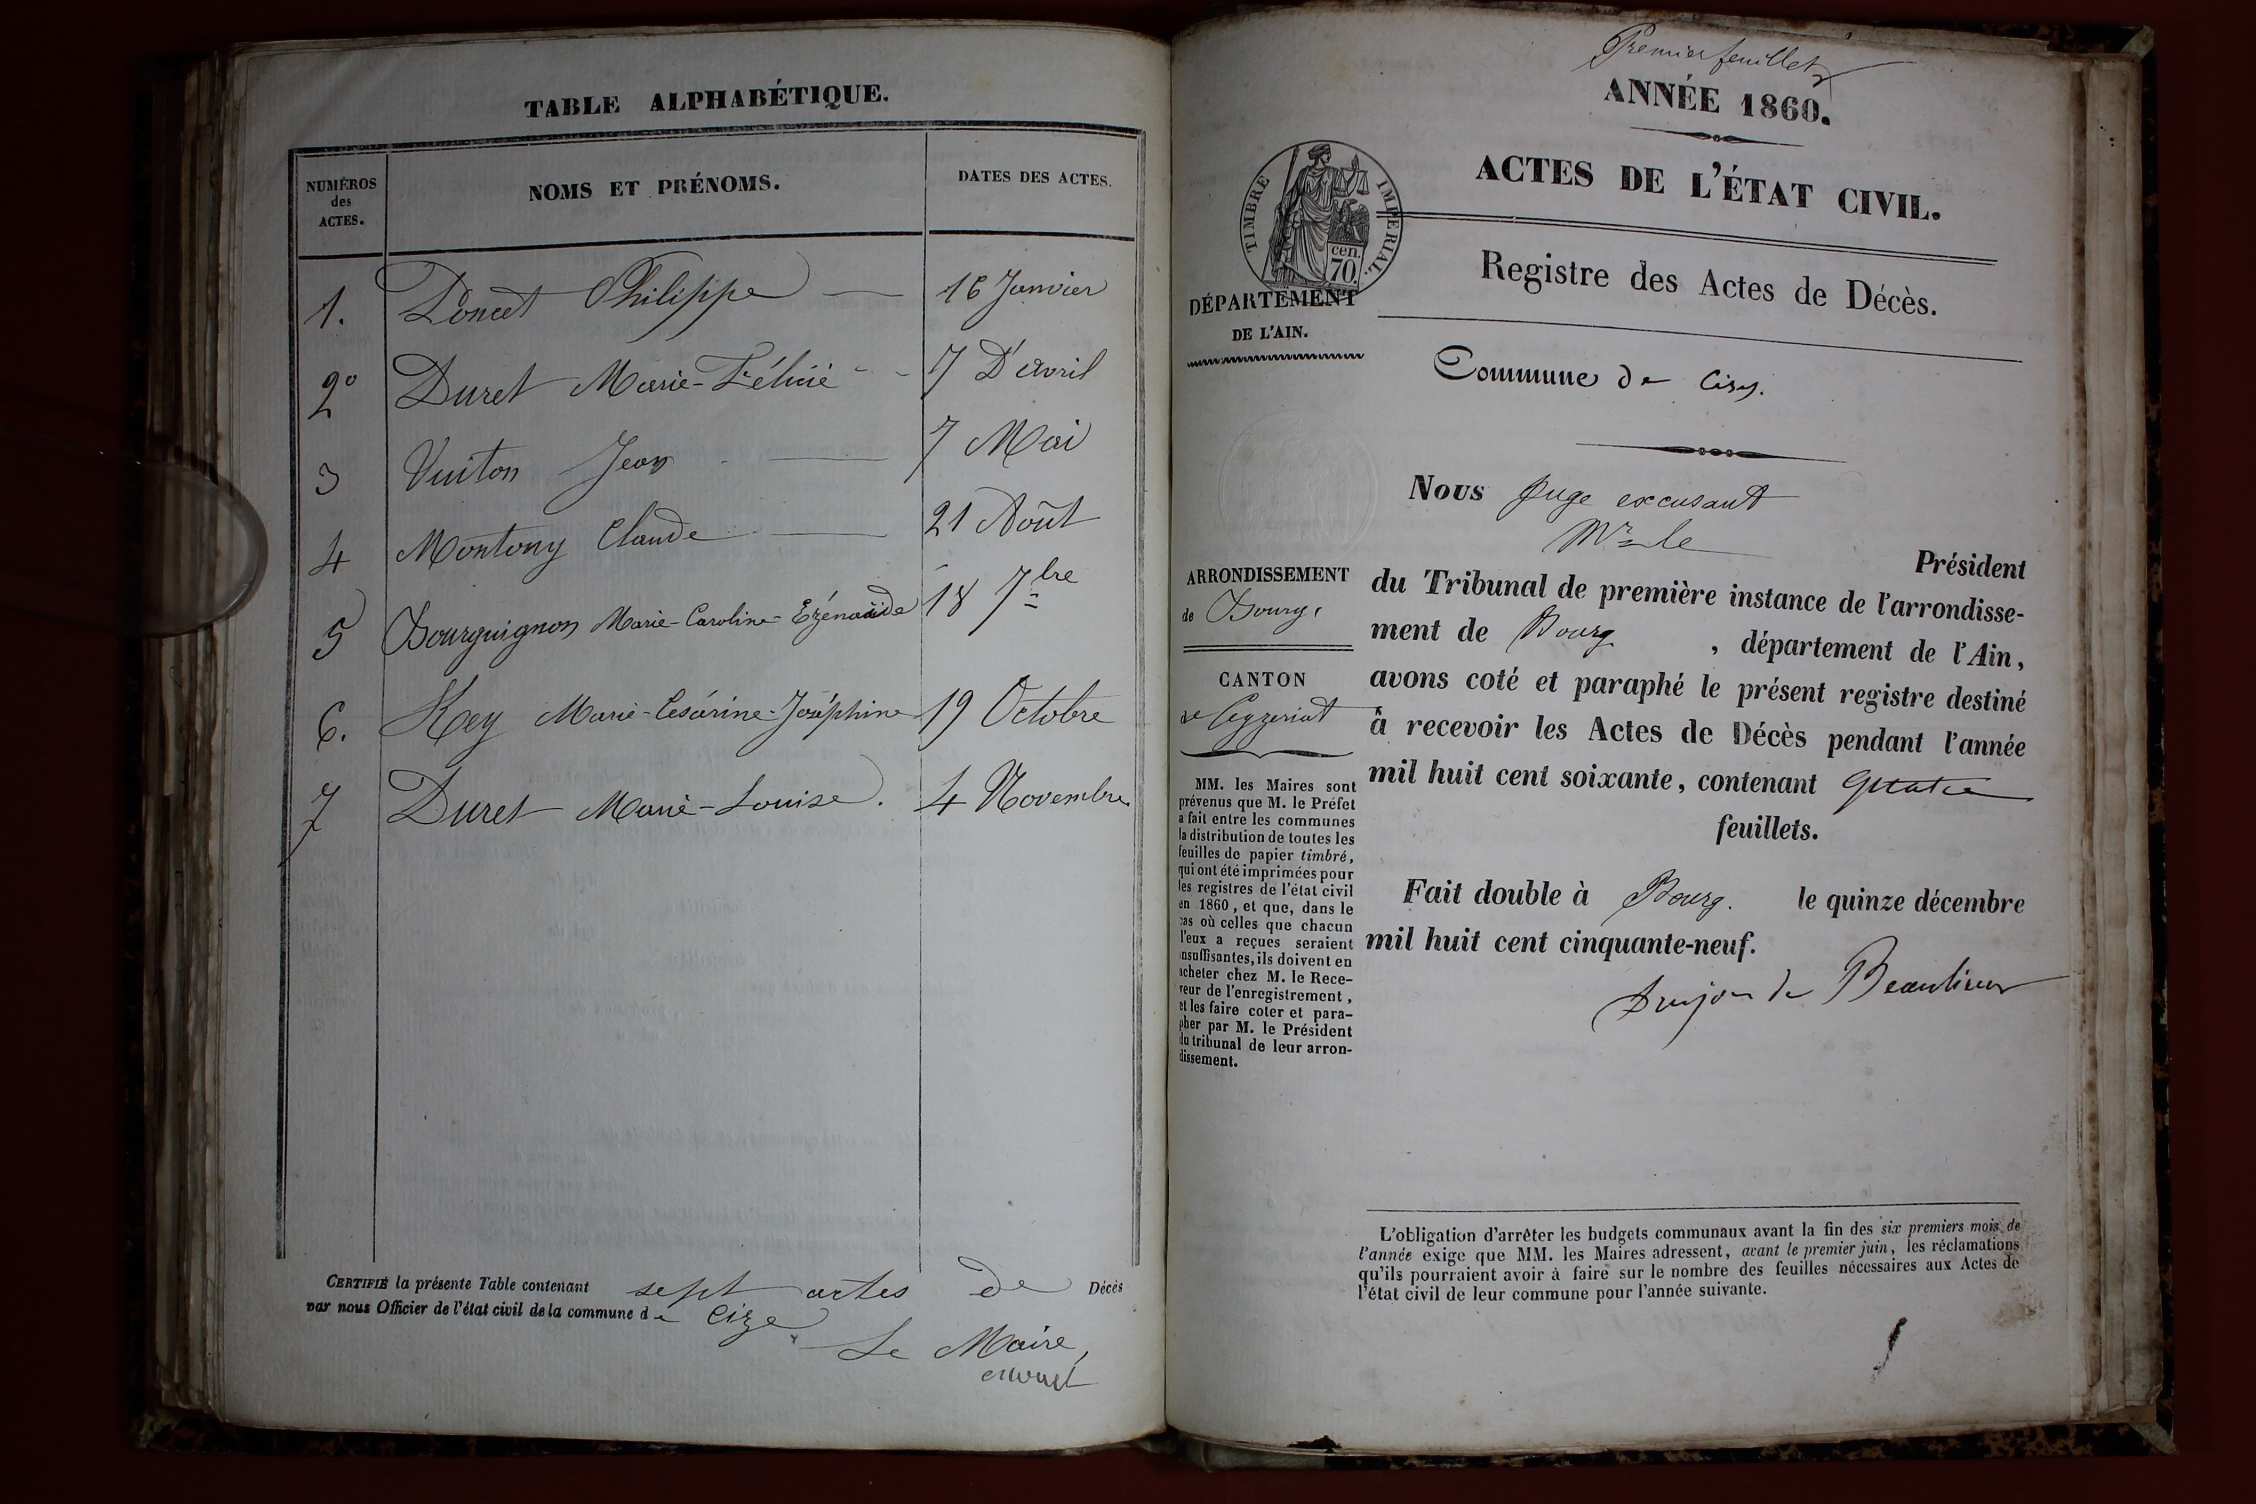 TABLE ALPHABÉTIQUE.
NUMÉROS
des
ACTES.
NOMS ET PRÉNOMS.
DATES DES ACTES.
1. Poncet Philippe 16 Janvier
2º Duret Marie-Félicie 7 D'avril
3 Vuiton Jean 7 Mai
4 Montony Claude 21 Août
5 Bourguignon Marie-Caroline-Ezénaïde 18 7bre
6. Rey Marie-Césárine-Joséphine 19 Octobre
7 Duret Marie-Louise. 4 Novembre.
CERTIFIÉ la présente Table contenant sept actes de Décès
par nous Officier de l'état civil de la commune de Cize
Le Maire,
Premier feuillet
ANNÉE 1860.
ACTES DE L'ÉTAT CIVIL.
TIMBRE IMPERIAL.
cen.
70.
Registre des Actes de Décès.
DÉPARTEMENT
DE L'AIN.
Commune de Cize.
Nous Juge excusant
Mr le
Président
du Tribunal de première instance de l'arrondisse-
ment de Bourg, département de l'Ain,
avons coté et paraphé le présent registre destiné
à recevoir les Actes de Décès pendant l'année
mil huit cent soixante, contenant quatre
feuillets.
Fait double à Bourg. le quinze décembre
mil huit cent cinquante-neuf.
de Beaulieu
ARRONDISSEMENT
de Bourg.
CANTON
de Ceyzeriat
MM. les Maires sont
prévenus que M. le Préfet
a fait entre les communes
la distribution de toutes les
feuilles de papier timbré,
qui ont été imprimées pour
les registres de l'état civil
en 1860, et que, dans le
cas où celles que chacun
d'eux a reçues seraient
insuffisantes, ils doivent en
acheter chez M. le Rece-
veur de l'enregistrement,
et les faire coter et para-
pher par M. le Président
du tribunal de leur arron-
dissement.
L'obligation d'arrêter les budgets communaux avant la fin des six premiers mois de
l'année exige que MM. les Maires adressent, avant le premier juin, les réclamations
qu'ils pourraient avoir à faire sur le nombre des feuilles nécessaires aux Actes de
l'état civil de leur commune pour l'année suivante.